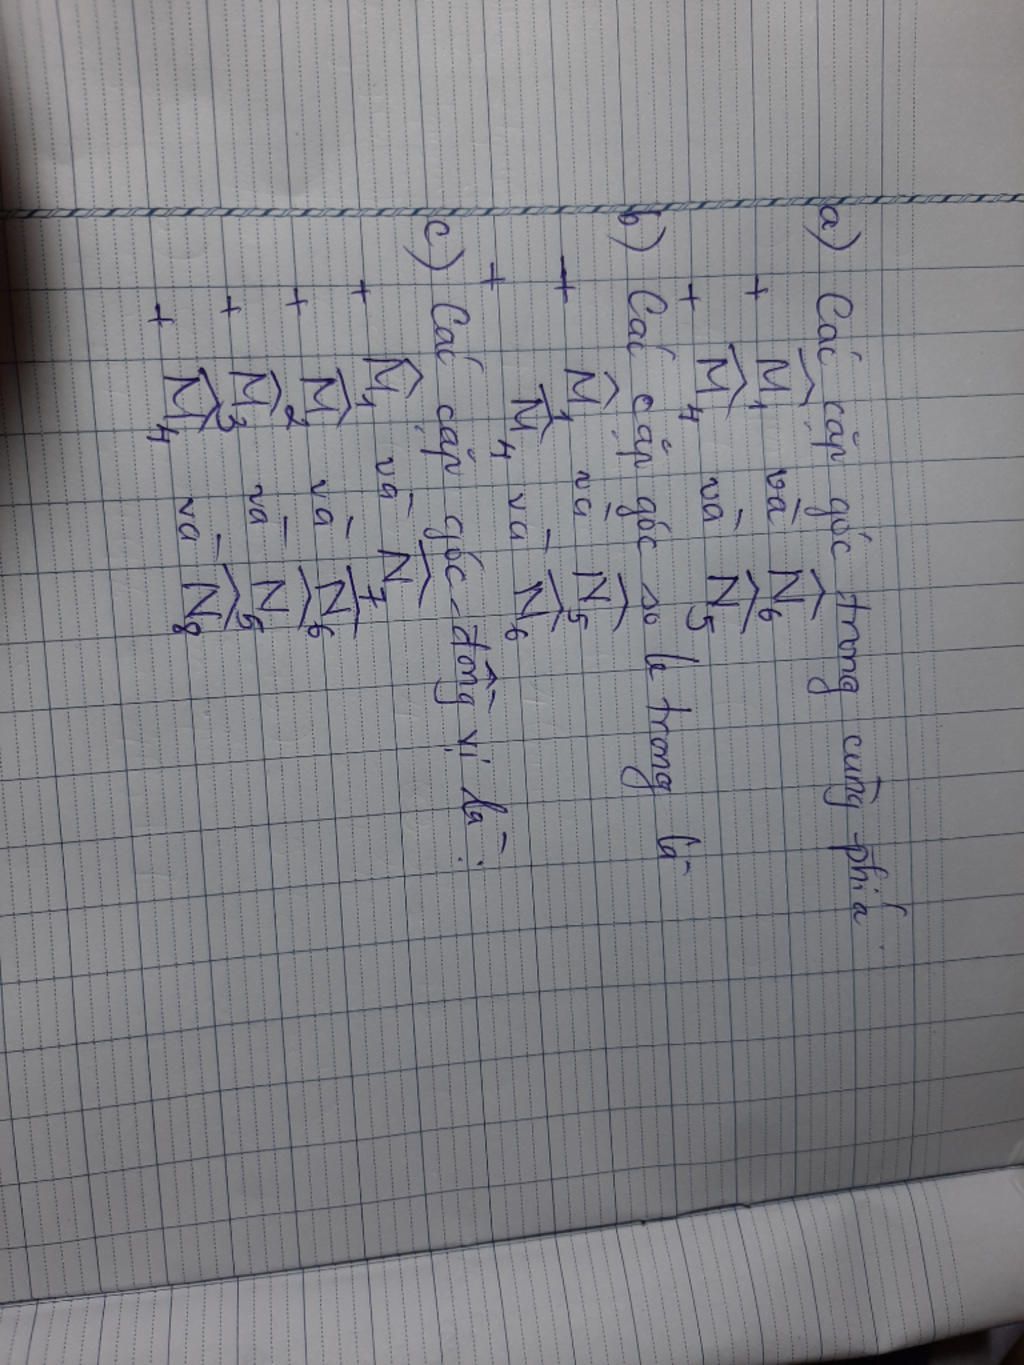 a) Các cặp góc trong cùng phía
+ M̂₁ và N̂₆
+ M̂₄ và N̂₅
b) Các cặp góc so le trong là
+ M̂₁ và N̂₅
+ M̂₄ và N̂₆
c) Các cặp góc đồng vị là:
+ M̂₁ và N̂₇
+ M̂₂ và N̂₆
+ M̂₃ và N̂₅
+ M̂₄ và N̂₈